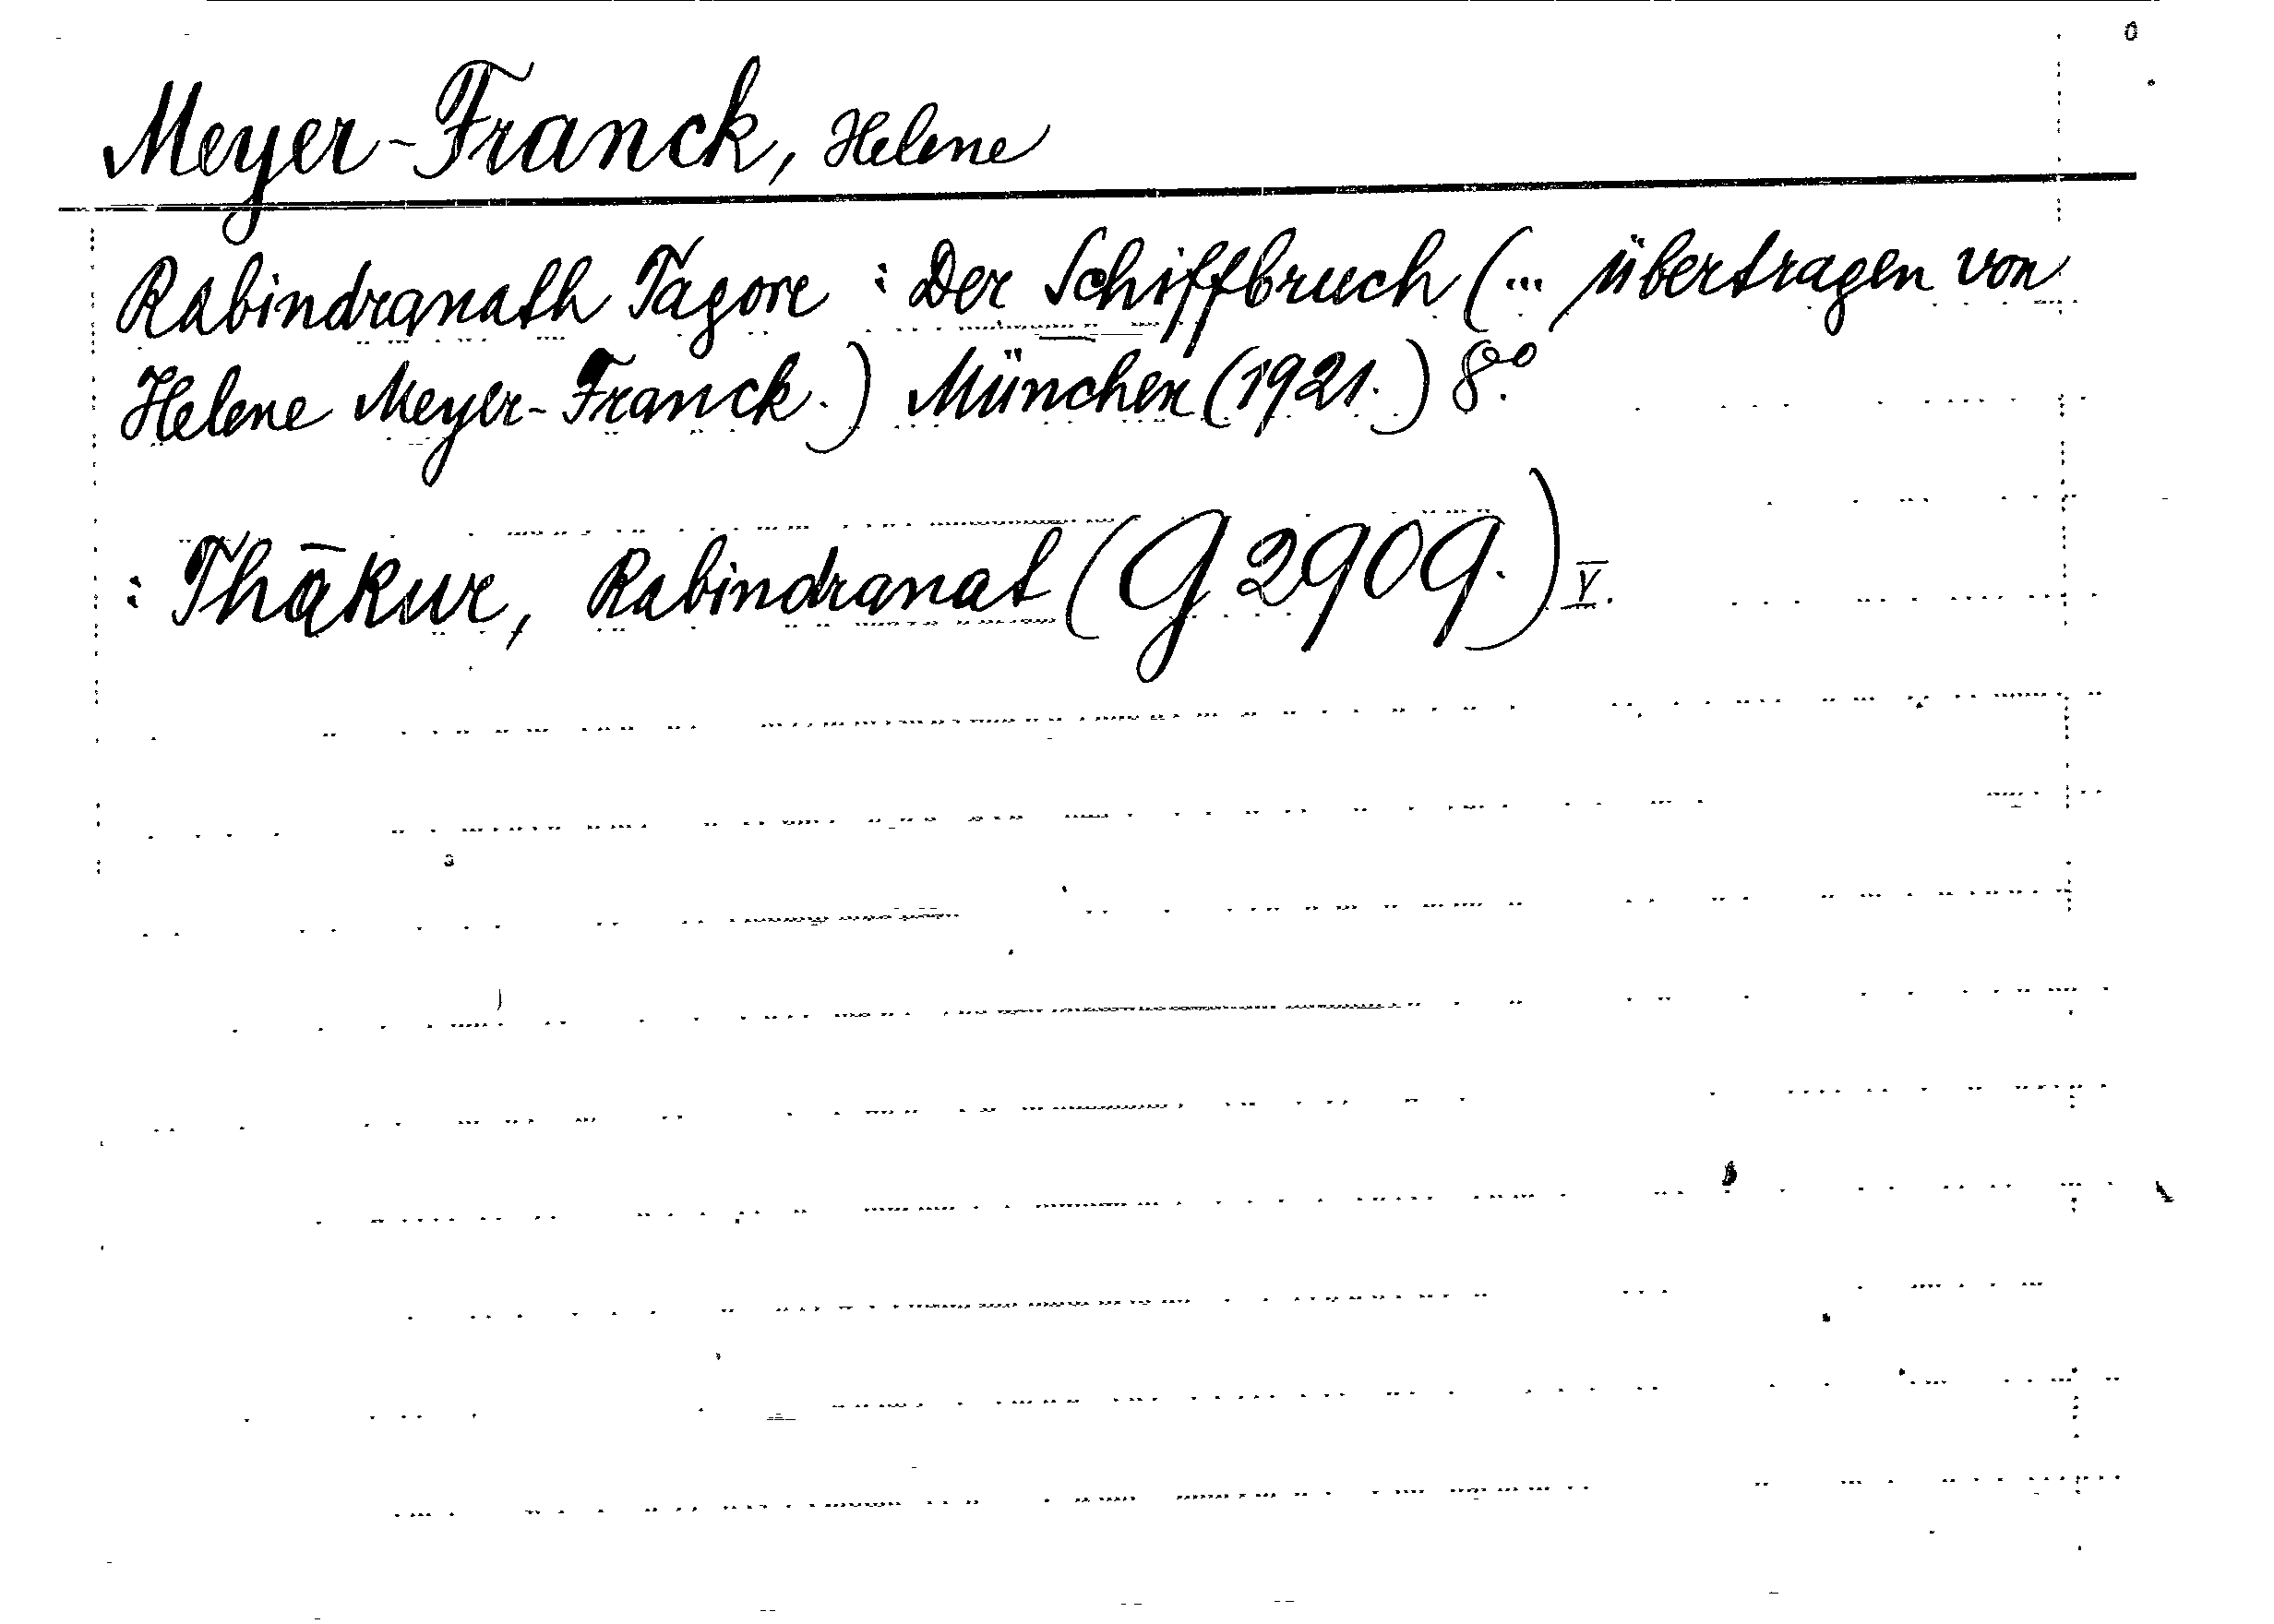 Meyer-Franck, Helene
Rabindranath Tagore : Der Schiffbruch (... übertragen von
Helene Meyer-Franck.) München (1921.) 8°.
: Thākur, Rabindranat (G 2909.) V.